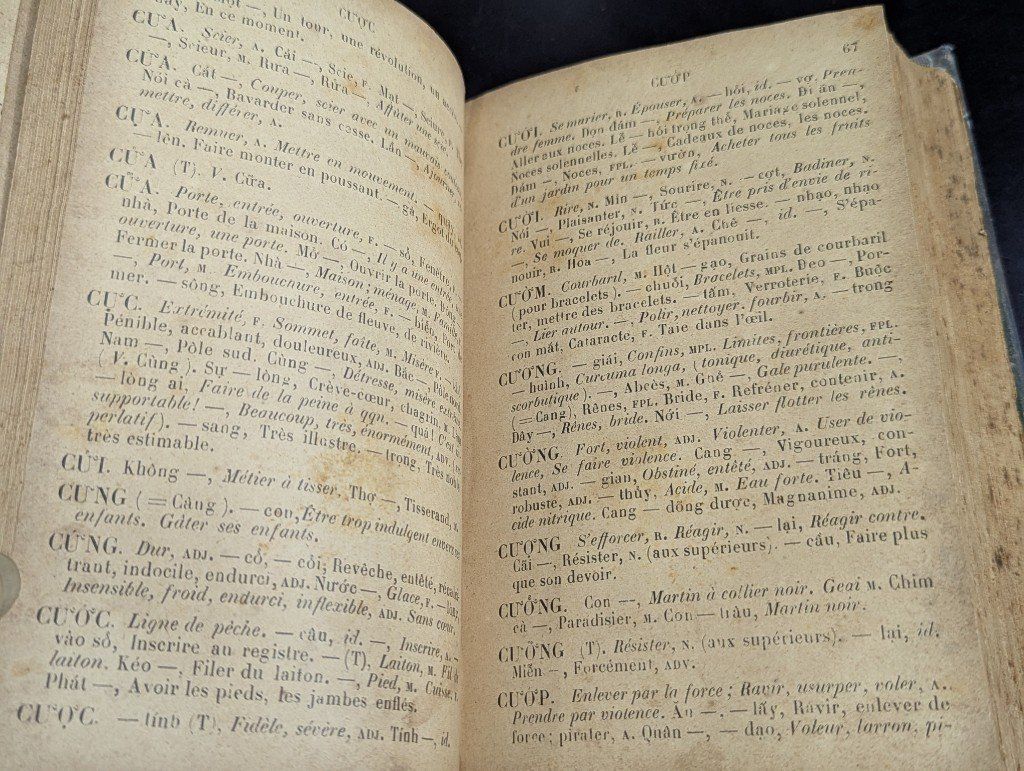 CƯỢC
day, En ce moment. Un tour, une révolution,
CƯA. Scier, A. Cái —, Scie, F. Mạt —, Sciure
—, Scieur, M. Rưa —, Rứa —, Affûter une scie.
CỨA. Cắt —, Couper, scier avec un mauvais
Nói cà —, Bavarder sans cesse. Lần —, Ajourner
mettre, différer, A.
CỰA. Remuer, A. Mettre en mouvement.
— lên. Faire monter en poussant. — gà, Ergot
CỮA (T). V. Cửa.
CỬA. Porte, entrée, ouverture, F. — sổ, Fenêtre,
nhà, Porte de la maison. Có —, Il y a une entrée
ouverture, une porte. Mở —, Ouvrir la porte.
Fermer la porte. Nhà —, Maison; ménage, M.
—, Port, M. Embouchure, entrée, F. — biển, Port
mer. — sông, Embouchure de fleuve, de rivière.
CỰC. Extrémité, F. Sommet, faîte, M. Misère F.
Pénible, accablant, douloureux, ADJ. Bắc —, Pôle
Nam —, Pôle sud. Cùng —, Détresse, misère
(V. Cùng). Sự — lòng, Crève-cœur, chagrin, M.
— lòng ai, Faire de la peine à qqn. — quá! C'est
supportable! —, Beaucoup, très, énormément, ADV.
perlatif). — sang, Très illustre. — trọng, Très
très estimable.
CỬI. Không —, Métier à tisser. Thợ —, Tisserand,
CƯNG (= Càng). — con, Être trop indulgent envers
enfants. Gâter ses enfants.
CỨNG. Dur, ADJ. — cổ, — cỏi, Revêche, entêté,
trant, indocile, endurci, ADJ. Nước —, Glace, F. — lòng
Insensible, froid, endurci, inflexible, ADJ. Sans cœur.
CƯỚC. Ligne de pêche. — câu, id. —, Inscrire, A. —
vào sổ, Inscrire au registre. — (T), Laiton, M. Fil de
laiton. Kéo —, Filer du laiton. —, Pied, M. Cuisse,
Phát —, Avoir les pieds, les jambes enflés.
CƯỢC. — tính (T), Fidèle, sévère, ADJ. Tính —, id.
CƯỚP
67
CƯỚI. Se marier, R. Épouser, A. — hỏi, id. — vợ, Pren-
dre femme. Dọn đám —, Préparer les noces. Đi ăn —,
Aller aux noces. Lễ — hỏi trọng thể, Mariage solennel,
Noces solennelles. Lễ —, Cadeaux de noces, les noces.
Đám —, Noces, FPL. — vườn, Acheter tous les fruits
d'un jardin pour un temps fixé.
CƯỜI. Rire, N. Mỉn —, Sourire, N. — cợt, Badiner, N.
Nói —, Plaisanter, N. Tức —, Être pris d'envie de ri-
re. Vui —, Se réjouir, R. Être en liesse. — nhạo, nhạo
—, Se moquer de. Railler, A. Chê —, id. —, S'épa-
nouir, R. Hoa —, La fleur s'épanouit.
CƯỜM. Courbaril, M. Hột — gạo, Grains de courbaril
(pour bracelets). — chuỗi, Bracelets, MPL. Đeo —, Por-
ter, mettre des bracelets. — tấm, Verroterie, F. Buộc
—, Lier autour. —, Polir, nettoyer, fourbir, A. — trong
con mắt, Cataracte, F. Taie dans l'œil.
CƯƠNG. — giái, Confins, MPL. Limites, frontières, FPL.
— huình, Curcuma longa, (tonique, diurétique, anti-
scorbutique). —, Abcès, M. Ghẻ —, Gale purulente. —,
(= Cang), Rênes, FPL. Bride, F. Refréner, contenir, A.
Dây —, Rênes, bride. Nới —, Laisser flotter les rênes.
CƯỜNG. Fort, violent, ADJ. Violenter, A. User de vio-
lence, Se faire violence. Cang —, Vigoureux, con-
stant, ADJ. — gian, Obstiné, entêté, ADJ. — tráng, Fort,
robuste, ADJ. — thủy, Acide, M. Eau forte. Tiêu —, A-
cide nitrique. Cang — dõng dược, Magnanime, ADJ.
CƯỢNG S'efforcer, R. Réagir, N. — lại, Réagir contre.
Cãi —, Résister, N. (aux supérieurs). — cầu, Faire plus
que son devoir.
CƯỠNG. Con —, Martin à collier noir. Geai M. Chim
cà —, Paradisier, M. Con — trâu, Martin noir.
CƯỠNG (T). Résister, N. (aux supérieurs). — lại, id.
Miễn —, Forcément, ADV.
CƯỚP. Enlever par la force; Ravir, usurper, voler, A.
Prendre par violence. Ăn —, — lấy, Ravir, enlever de
force; pirater, A. Quân —, — đạo, Voleur, larron, pi-